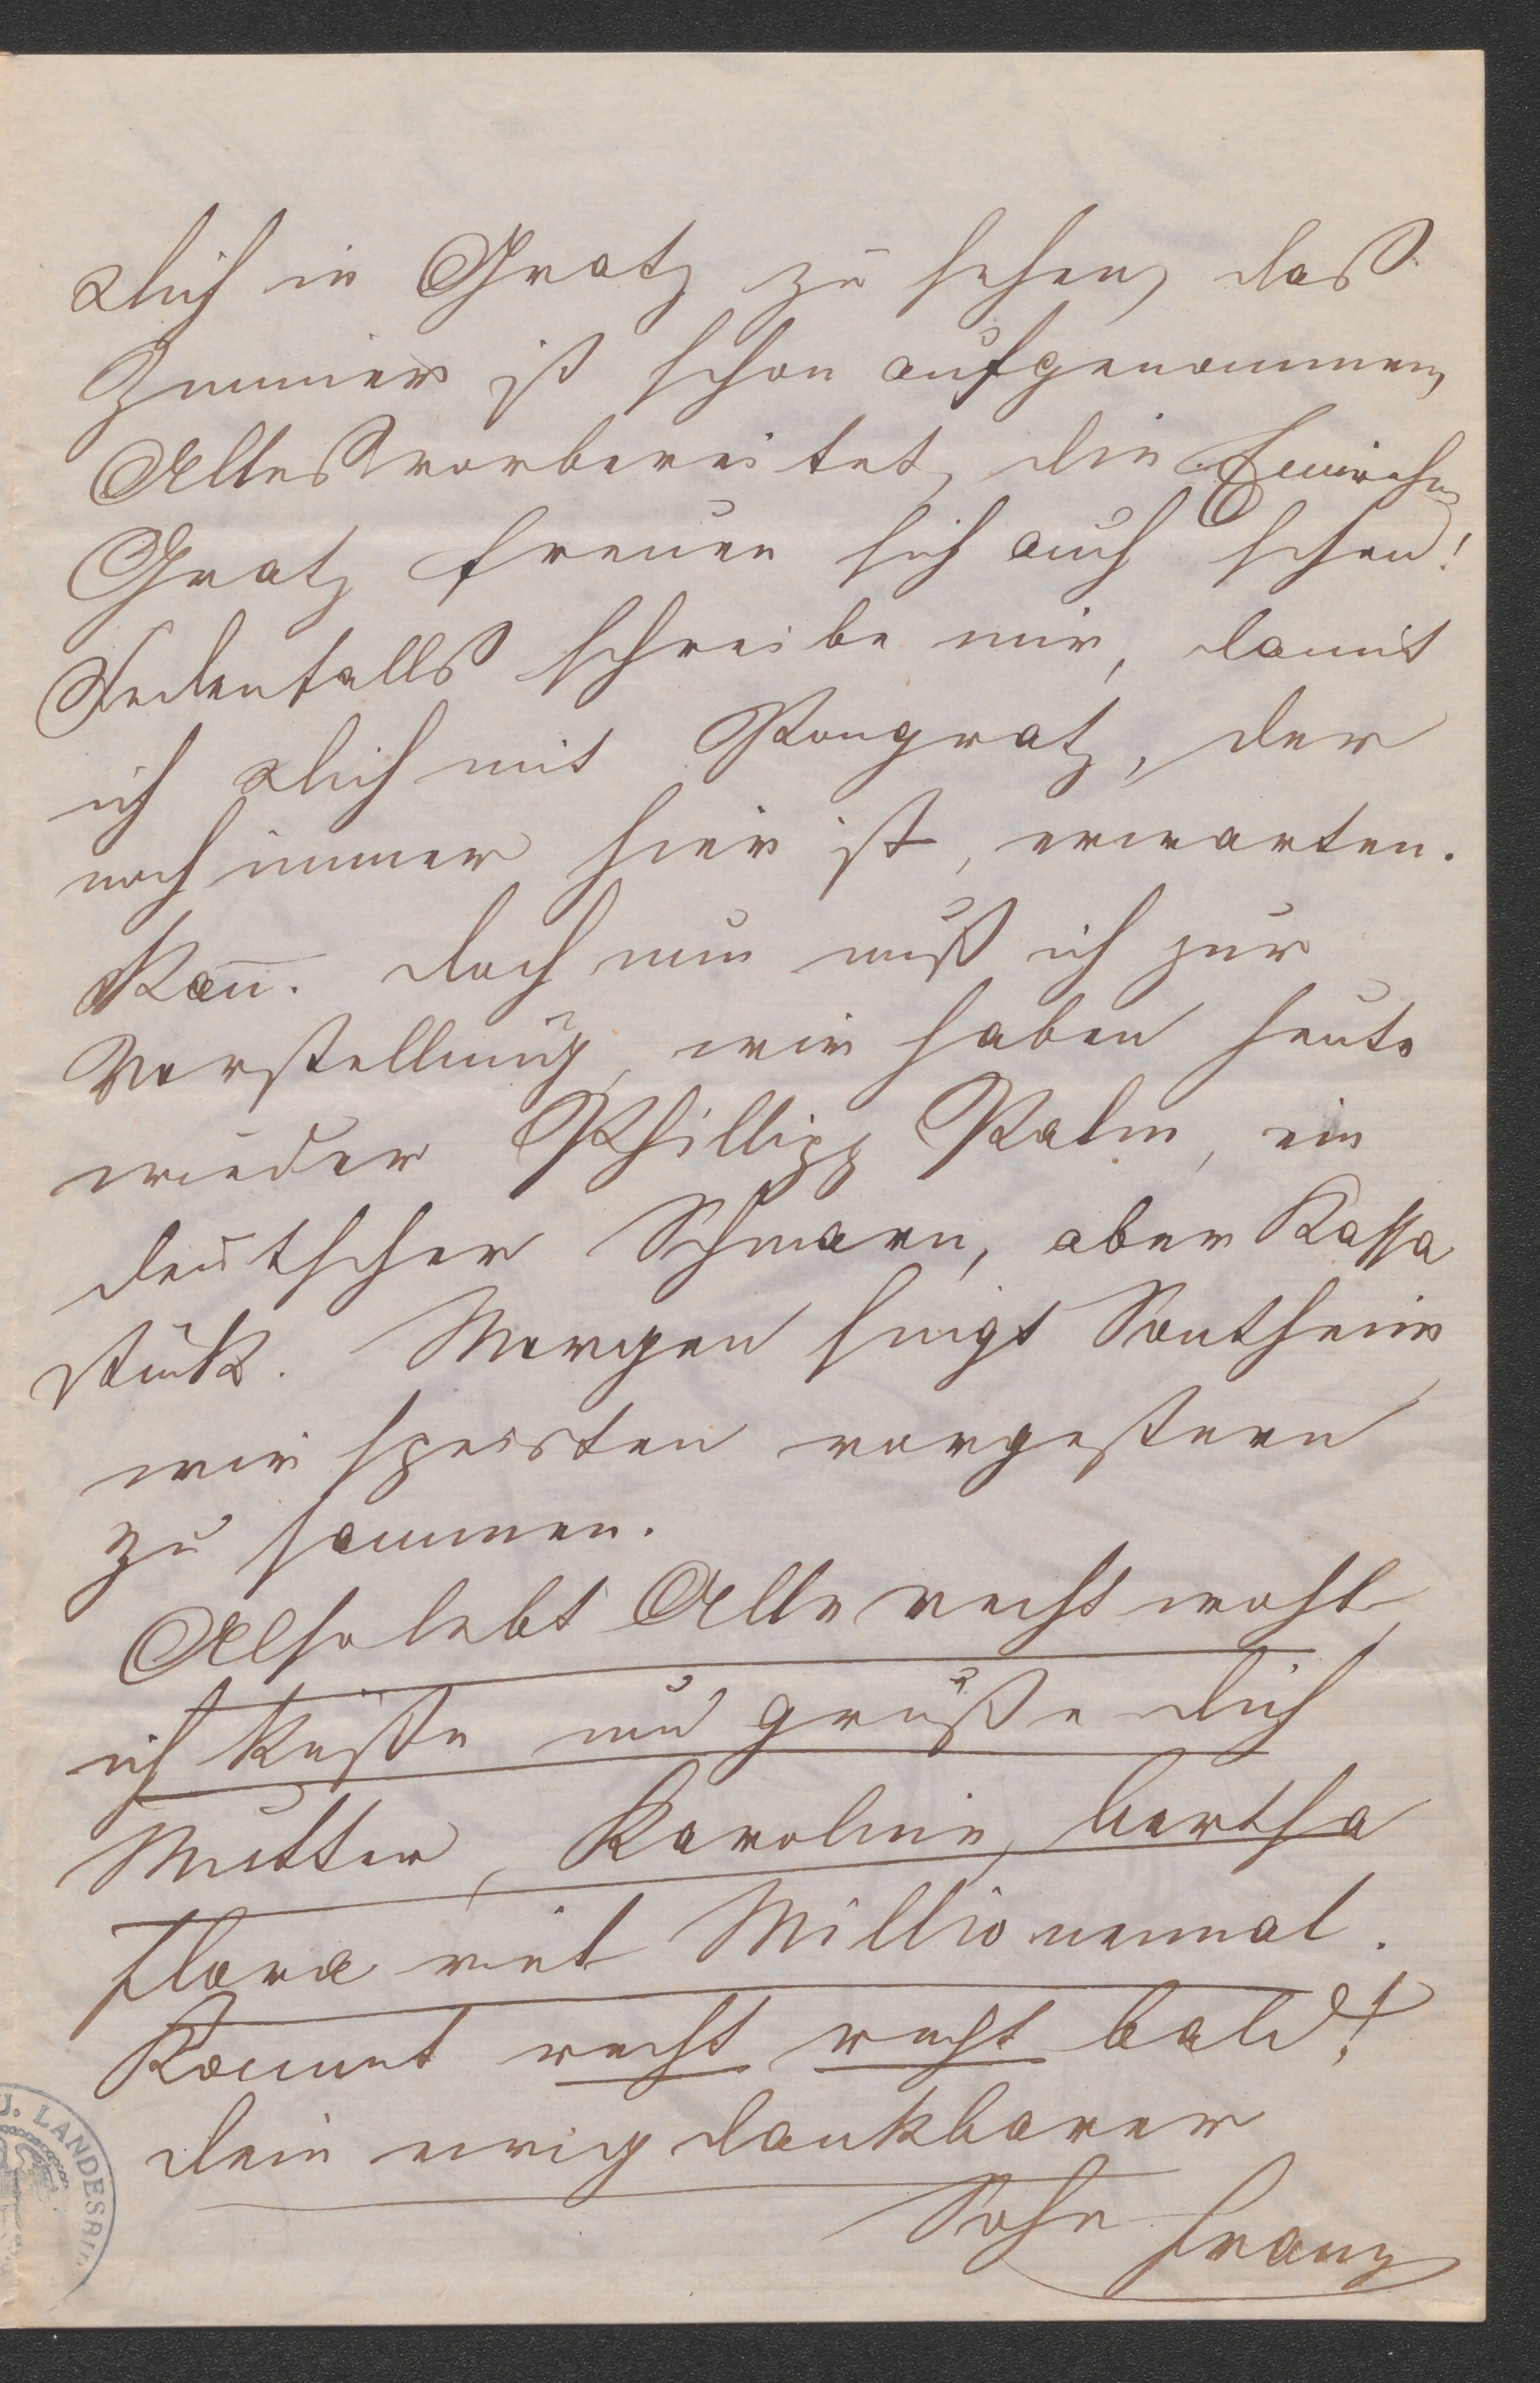 Dich in Gratz zu sehen, das
Zimmer ist schon aufgenommen,
Alles vorbereitet, die
Gratz freuen sich auch schon!
Jedenfalls schreibe mir, damit
ich Dich mit Pongratz, der
noch immer hier ist, erwarten.
kañ. Doch nun muß ich zur
Vorstellung, wir haben heute
wieder Phillipp Palm, ein
deutscher Schmarn, aber Kassa
stük. Morgen singt Sontheim
wir speisten vorgestern
zu sammen.
Also lebt Alle recht wohl,
ich küße und grüße Dich
Mutter, Karoline, Bertha
Flora viel Millionenmal.
Kommt recht recht bald!
Dein ewig dankbarer
Sohn Franz
J. LANDESBIB